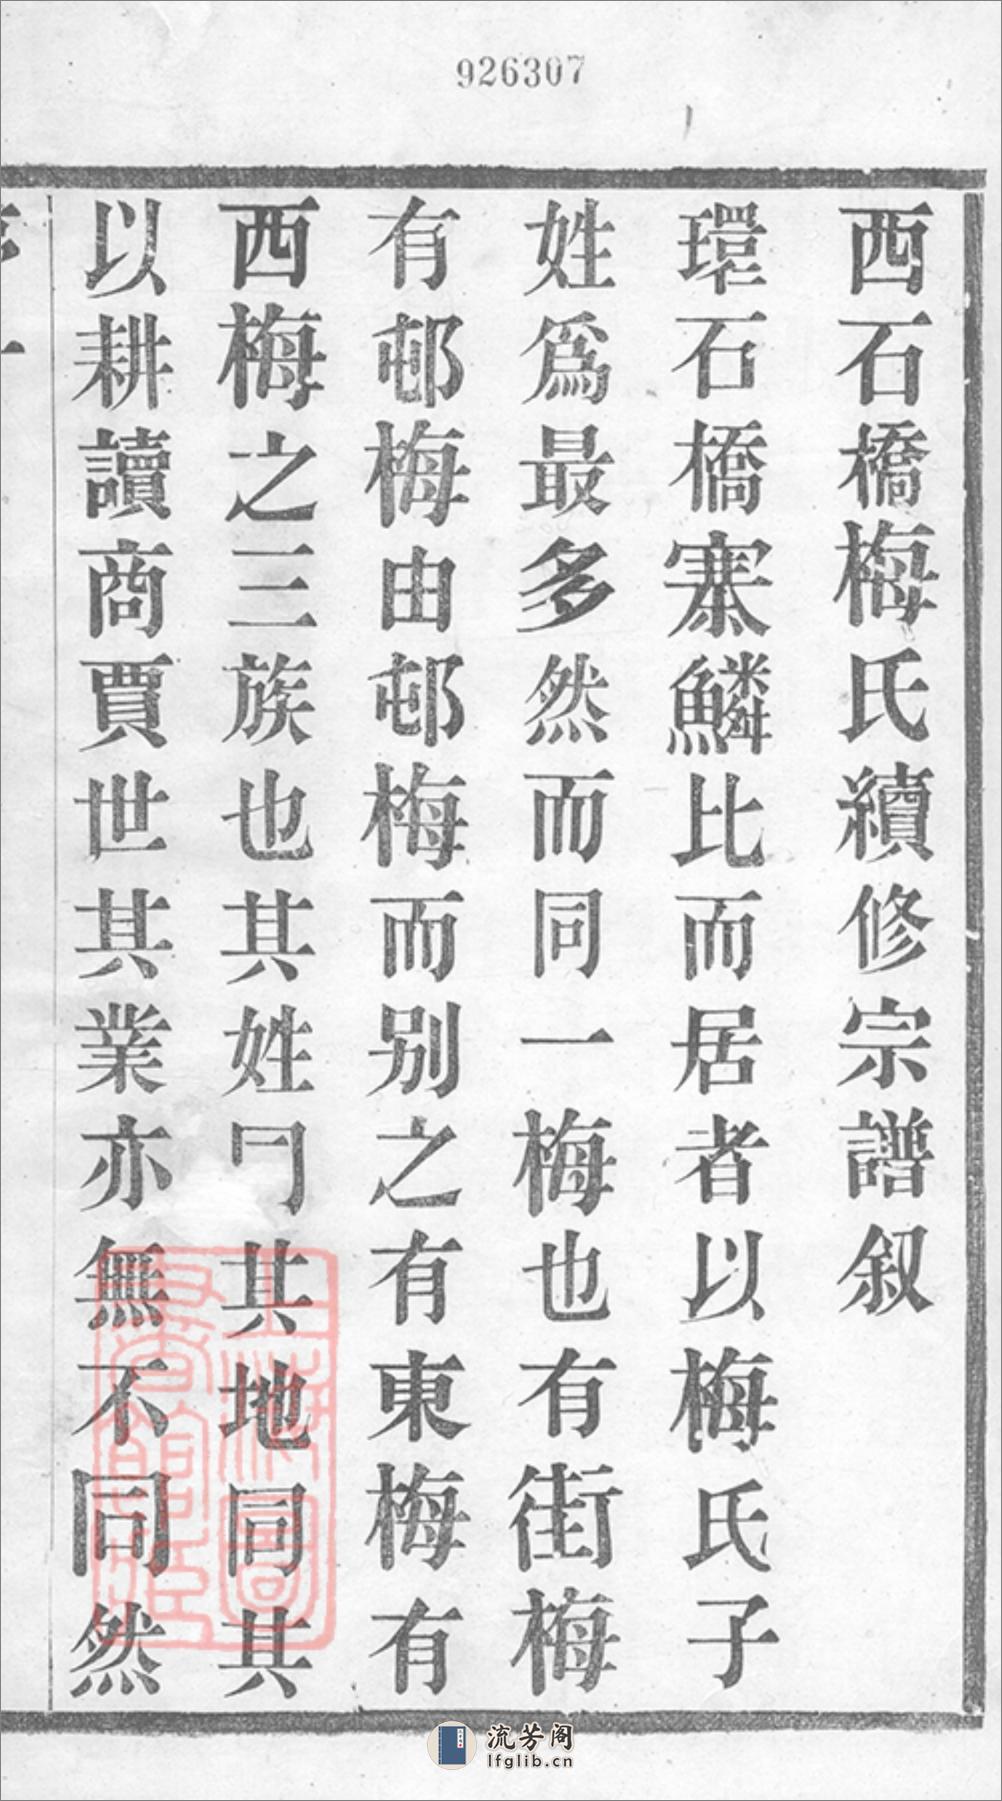 926307
西石橋梅氏續修宗譜叙
環石橋寨鱗比而居者以梅氏子
姓爲最多然而同一梅也有街梅
有邨梅由邨梅而别之有東梅有
西梅之三族也其姓同其地同其
以耕讀商賈世其業亦無不同然
上海圖書館藏
流芳阁
lfglib.cn